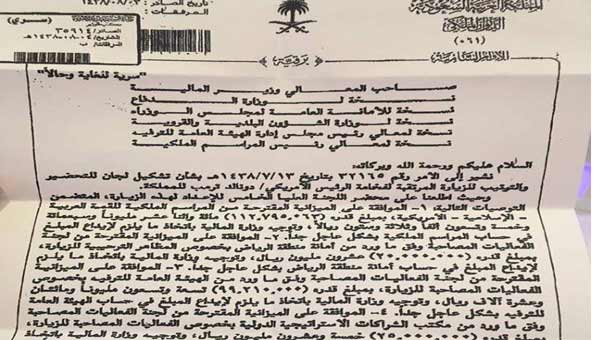 المملكة العربية السعودية
الديوان الملكي
(٠٦١)
تاريخ الصادر : ١٤٣٨/٠٨/٠٣
المرفقات :
(سري)
٣٥٩١٤
برقية
"سرية للغاية وحالاً"
صاحب المعالي وزير المالية
نسخة لوزارة الدفاع
نسخة للأمانة العامة لمجلس الوزراء
نسخة لوزارة الشؤون البلدية والقروية
نسخة لمعالي رئيس مجلس إدارة الهيئة العامة للترفيه
نسخة لمعالي رئيس المراسم الملكية
السلام عليكم ورحمة الله وبركاته:
نشير إلى الأمر رقم ٣٢١٦٥ بتاريخ ١٤٣٨/٧/١٣هـ بشأن تشكيل لجان للتحضير
والترتيب للزيارة المرتقبة لفخامة الرئيس الأمريكي/ دونالد ترمب للمملكة.
وحيث اطلعنا على محضر اللجنة العليا الخامس للإعداد لهذه الزيارة، المتضمن
التوصيات التالية: ١- الموافقة على الميزانية المقترحة من المراسم الملكية للقمة العربية
– الإسلامية – الأمريكية، بمبلغ قدره (١١٢,٧٩٥,٠٦٣) مائة واثنا عشر مليوناً وسبعمائة
وخمسة وتسعون ألفاً وثلاثة وستون ريالاً، وتوجيه وزارة المالية باتخاذ ما يلزم لإيداع المبلغ
في حساب المراسم الملكية بشكل عاجل جداً. ٢- الموافقة على الميزانية المقترحة من لجنة
الفعاليات المصاحبة وفق ما ورد من أمانة منطقة الرياض بخصوص المظاهر الترحيبية للزيارة،
بمبلغ قدره (٢٠,٠٠٠,٠٠٠) عشرون مليون ريال، وتوجيه وزارة المالية باتخاذ ما يلزم
لإيداع المبلغ في حساب أمانة منطقة الرياض بشكل عاجل جداً. ٣- الموافقة على الميزانية
المقترحة من لجنة الفعاليات المصاحبة وفق ما ورد من الهيئة العامة للترفيه بخصوص
الفعاليات المصاحبة للزيارة، بمبلغ قدره (٩٩,٢١٠,٠٠٠) تسعة وتسعون مليوناً ومائتان
وعشرة آلاف ريال، وتوجيه وزارة المالية باتخاذ ما يلزم لإيداع المبلغ في حساب الهيئة العامة
للترفيه بشكل عاجل جداً. ٤- الموافقة على الميزانية المقترحة من لجنة الفعاليات المصاحبة
وفق ما ورد من مكتب الشراكات الاستراتيجية الدولية بخصوص الفعاليات المصاحبة للزيارة،
بمبلغ قدره (٢٥,٠٠٠,٠٠٠) خمسة وعشرون مليون ريال، وتوجيه وزارة المالية باتخاذ